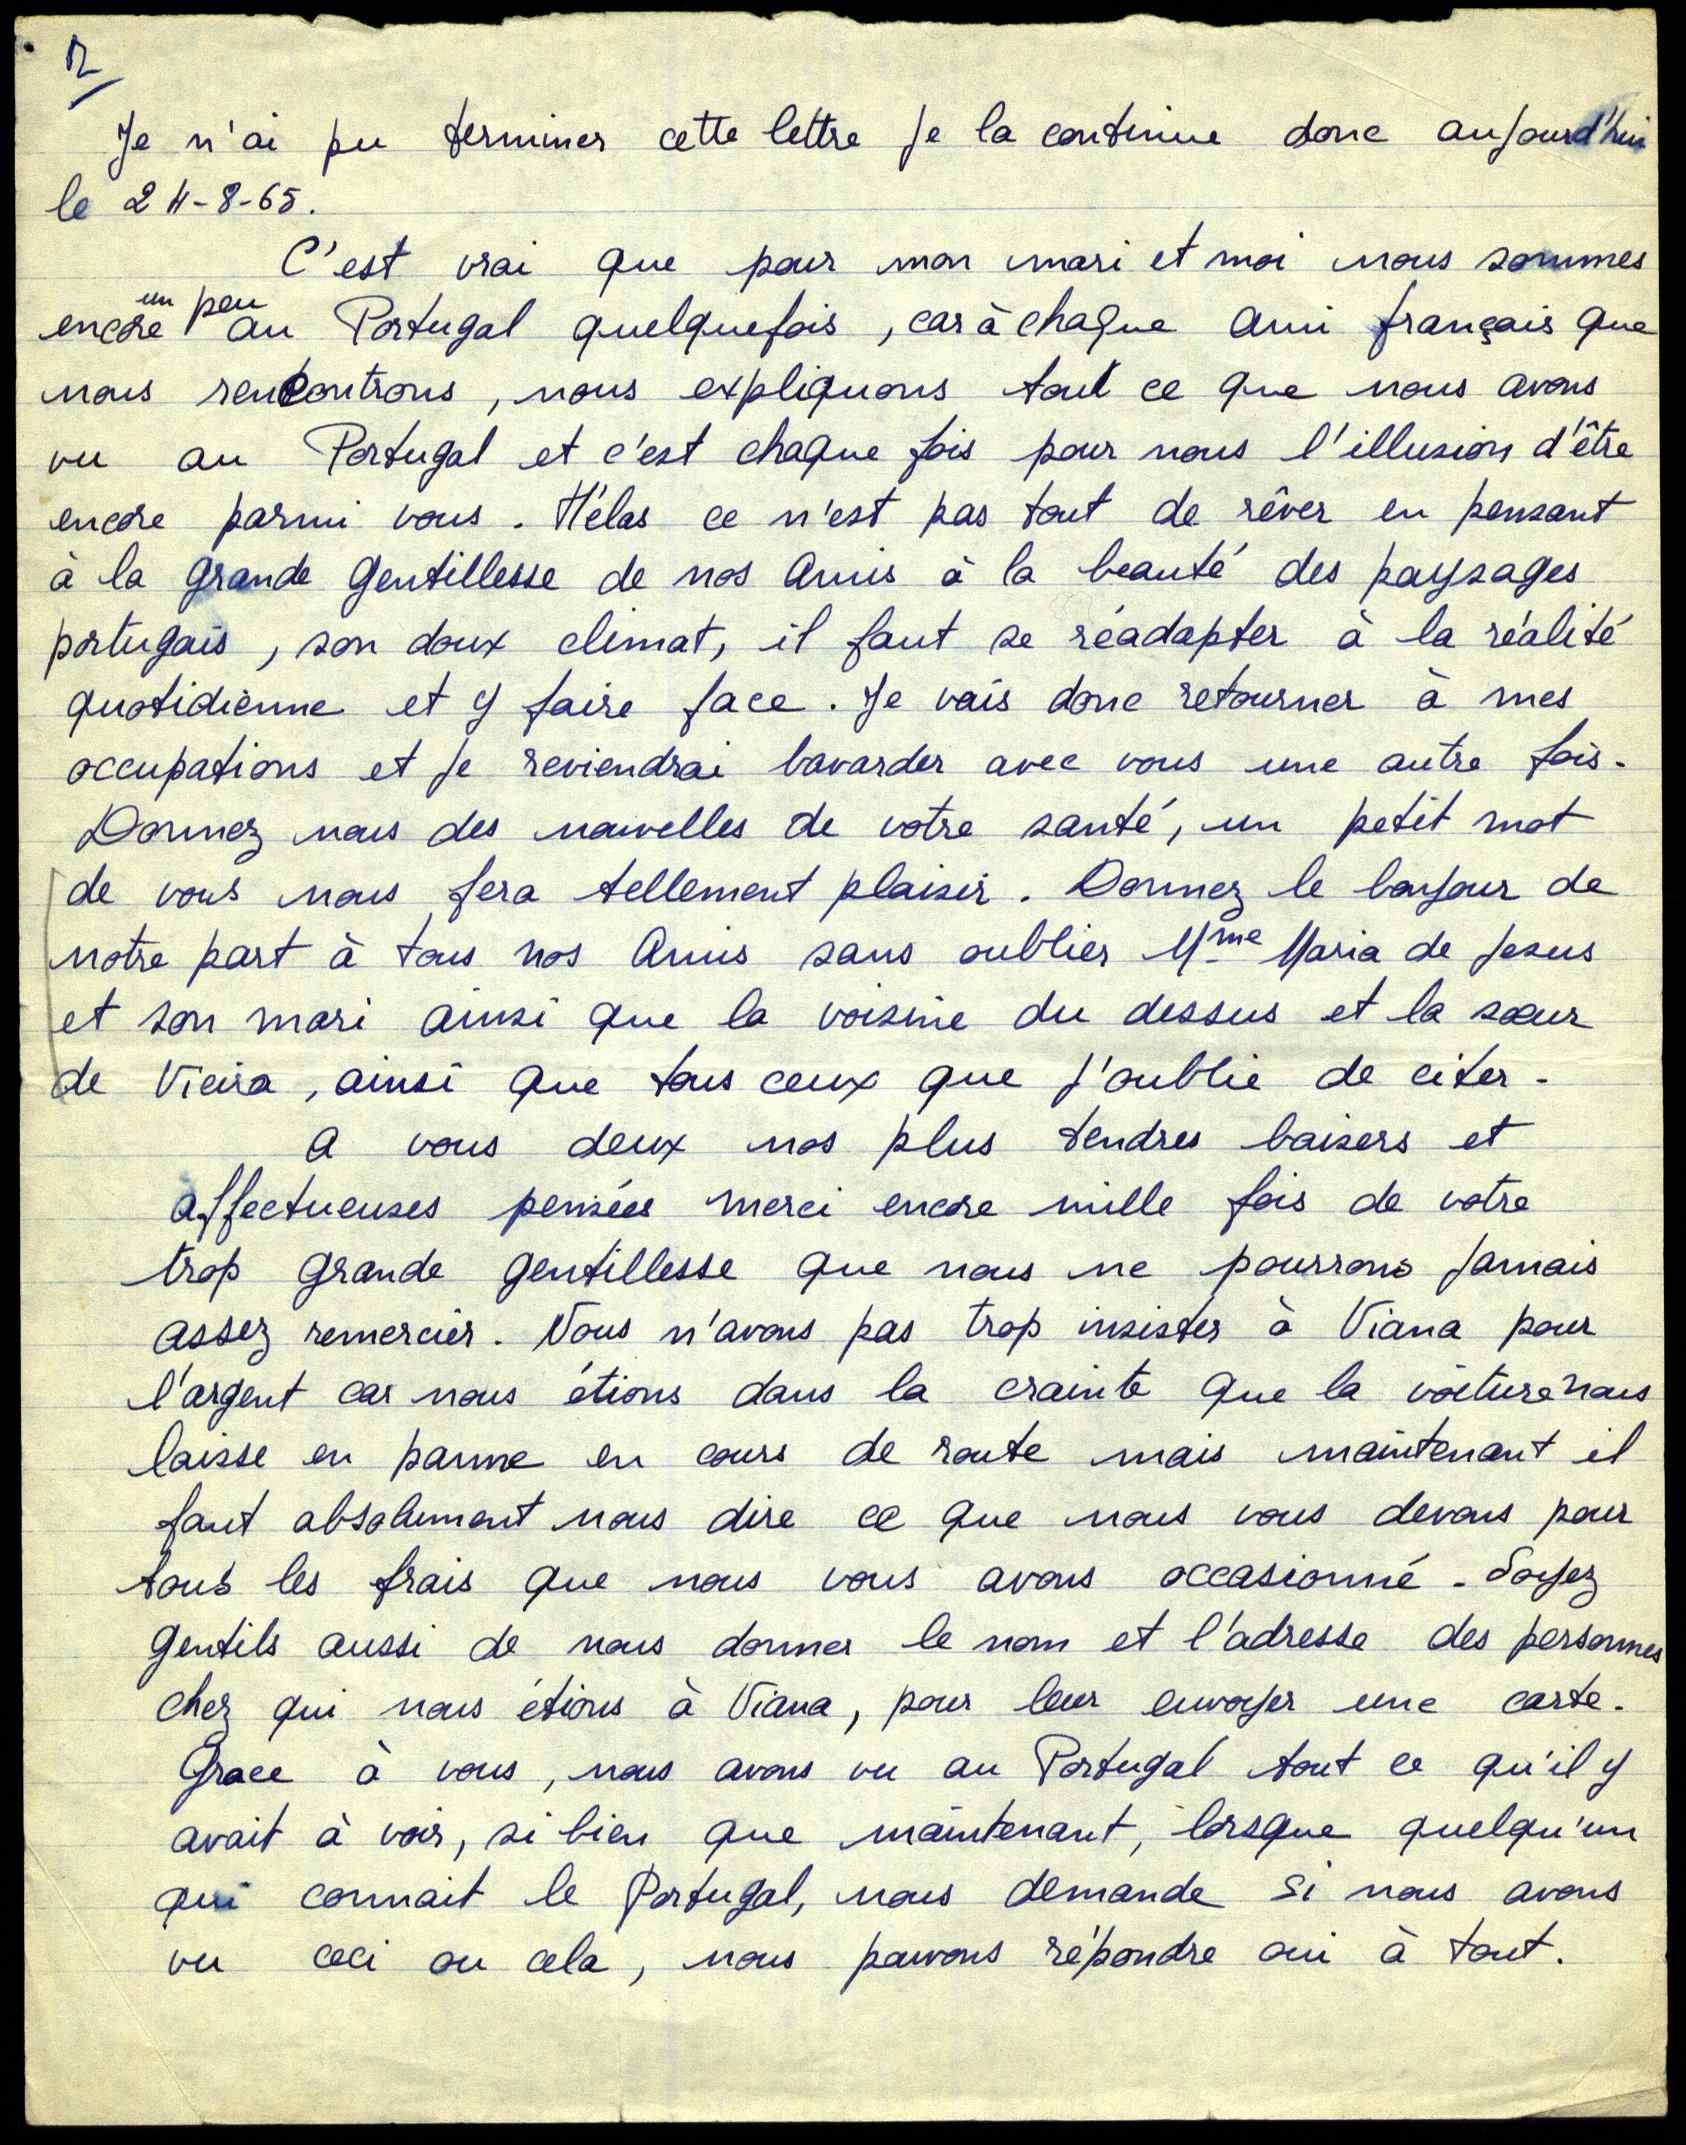 2/
Je n'ai pu terminer cette lettre je la continue donc aujourd'hui
le 24-8-65.
C'est vrai que pour mon mari et moi nous sommes
encore un peu au Portugal quelquefois, car à chaque Ami français que
nous rencontrons, nous expliquons tout ce que nous avons
vu au Portugal et c'est chaque fois pour nous l'illusion d'être
encore parmi vous. Hélas ce n'est pas tout de rêver en pensant
à la grande gentillesse de nos Amis à la beauté des paysages
portugais, son doux climat, il faut se réadapter à la réalité
quotidienne et y faire face. Je vais donc retourner à mes
occupations et je reviendrai bavarder avec vous une autre fois.
Donnez nous des nouvelles de votre santé, un petit mot
de vous nous fera tellement plaisir. Donnez le bonjour de
notre part à tous nos Amis sans oublier Mme Maria de Jesus
et son mari ainsi que la voisine du dessus et la sœur
de Vieira, ainsi que tous ceux que j'oublie de citer.
A vous deux nos plus tendres baisers et
affectueuses pensées merci encore mille fois de votre
trop grande gentillesse que nous ne pourrons jamais
assez remercier. Nous n'avons pas trop insister à Viana pour
l'argent car nous étions dans la crainte que la voiture nous
laisse en panne en cours de route mais maintenant il
faut absolument nous dire ce que nous vous devons pour
tous les frais que nous vous avons occasionné. Soyez
gentils aussi de nous donner le nom et l'adresse des personnes
chez qui nous étions à Viana, pour leur envoyer une carte.
Grace à vous, nous avons vu au Portugal tout ce qu'il y
avait à voir, si bien que maintenant, lorsque quelqu'un
qui connait le Portugal, nous demande si nous avons
vu ceci ou cela, nous pouvons répondre oui à tout.